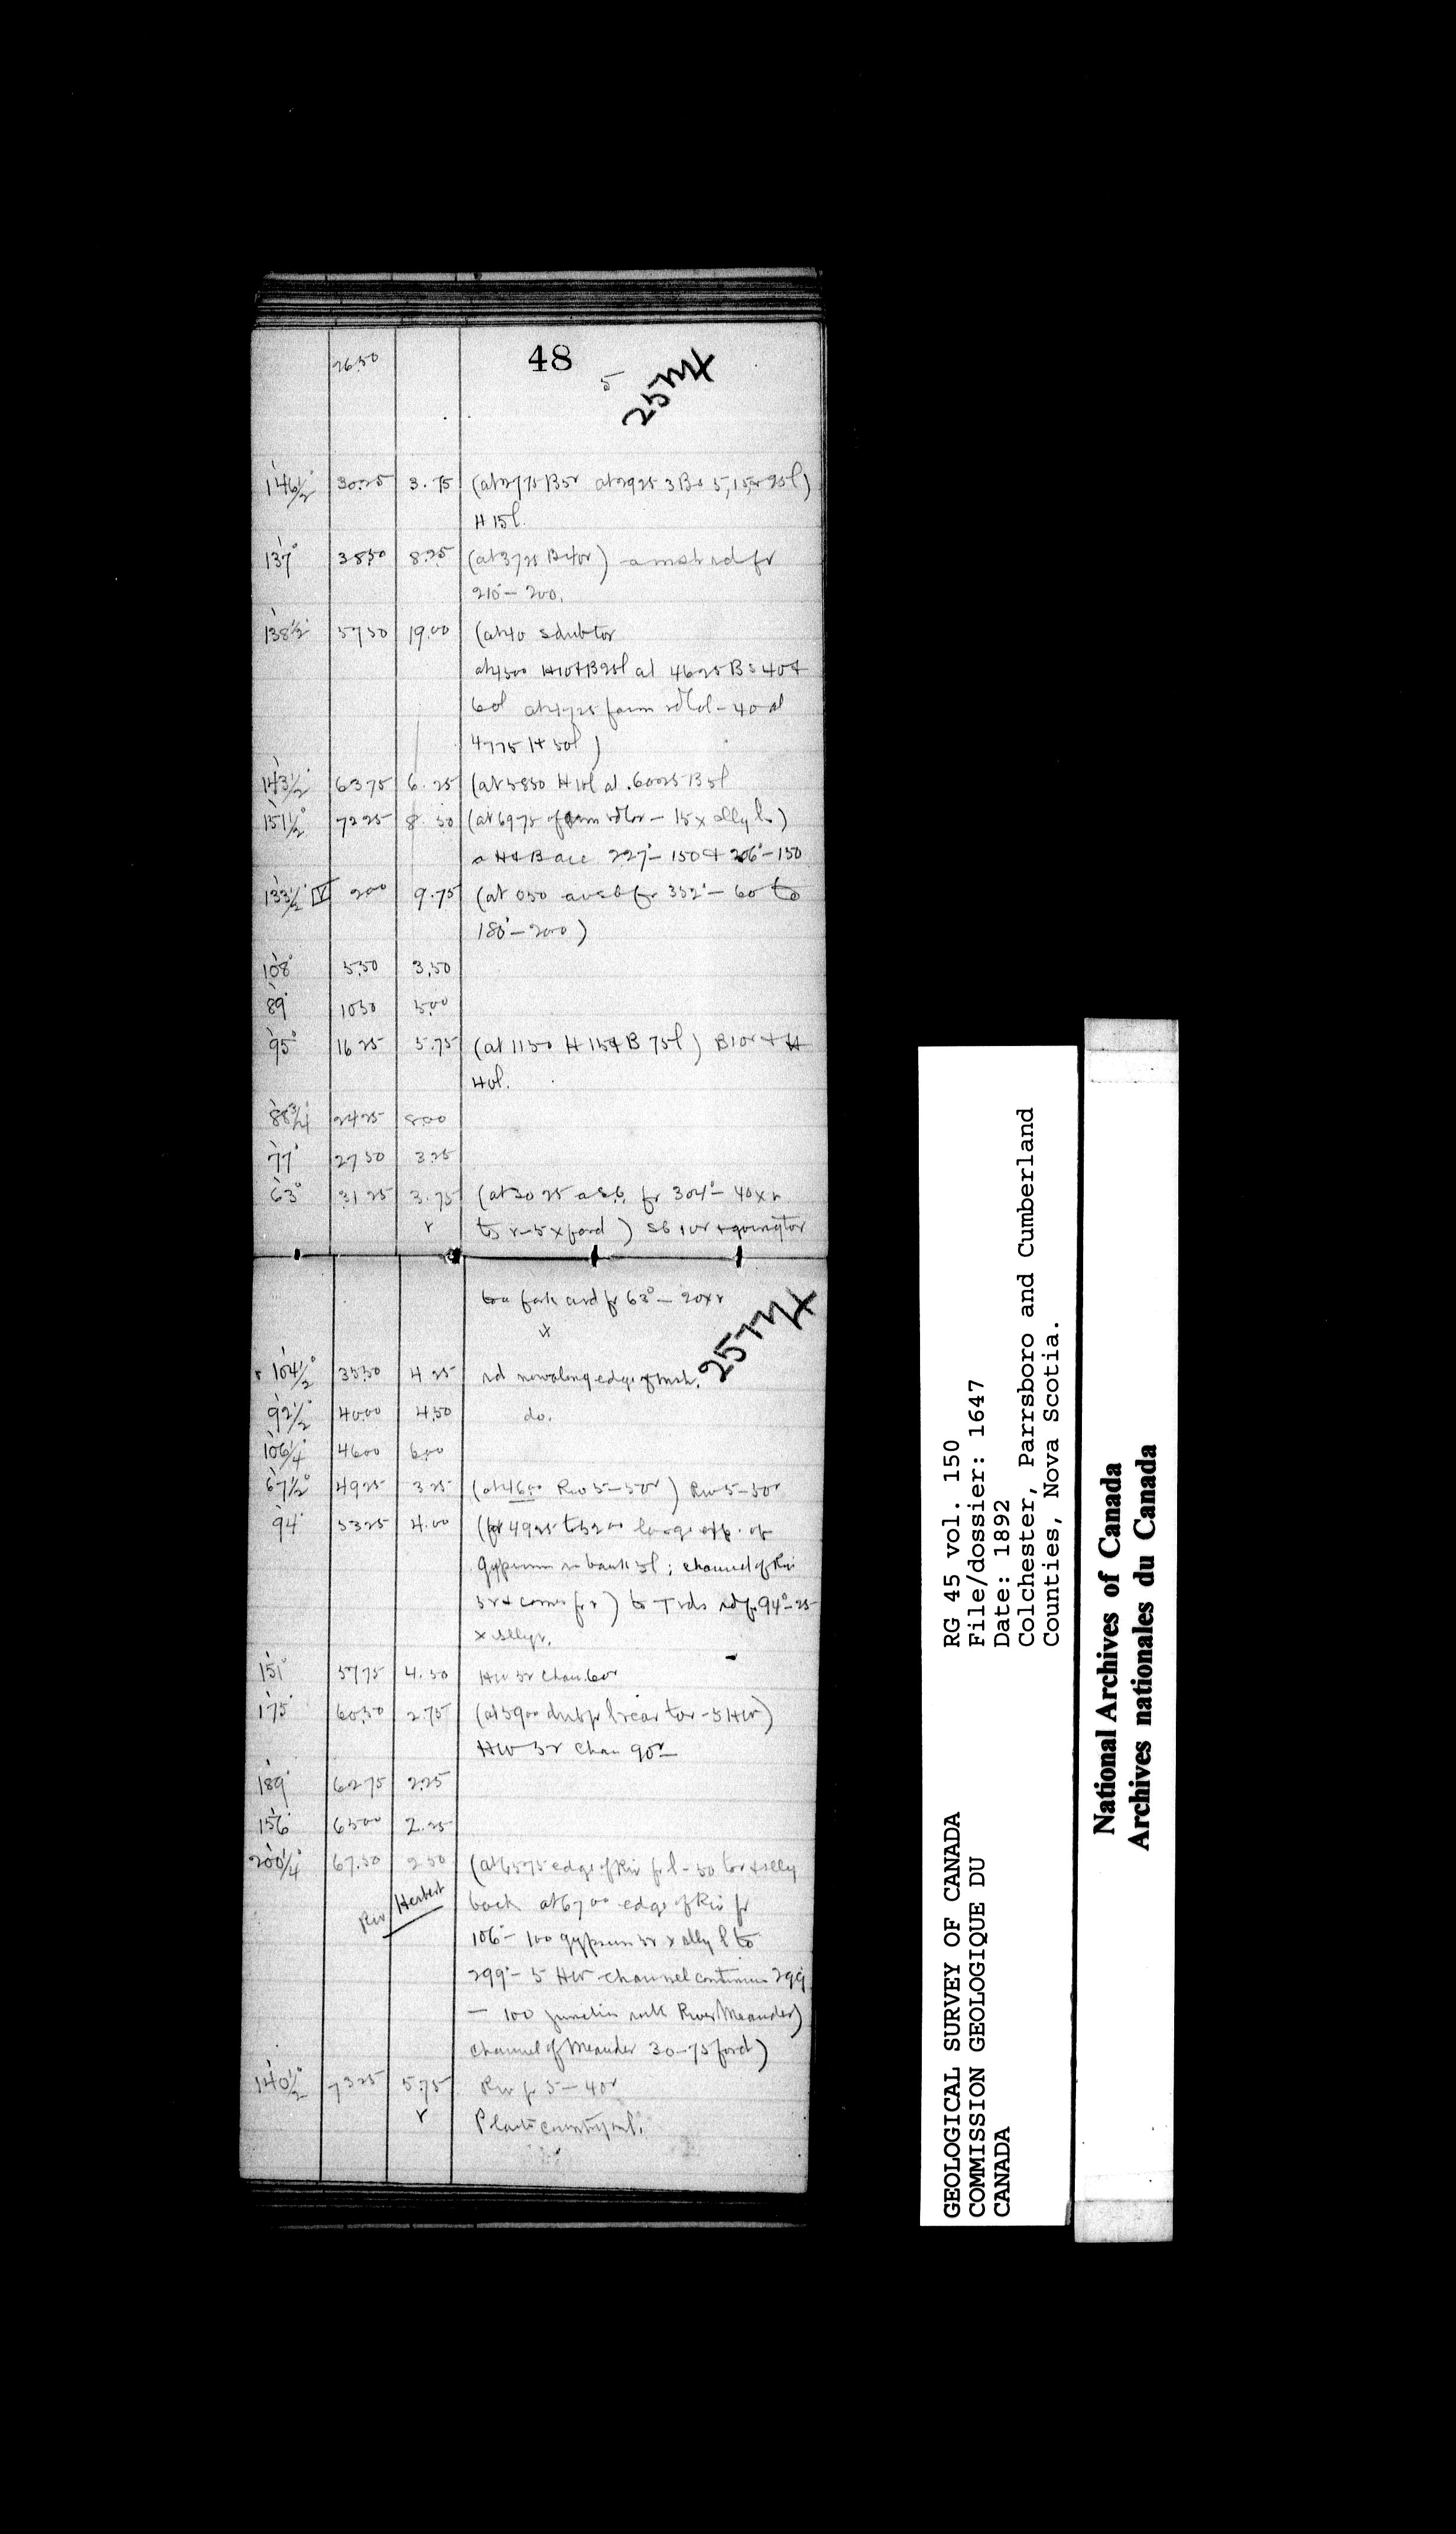 48
2650
5
25 m 4
146½° 3025 3.75 (at 2775 B5r at 2925 3 Bs 5, 15, & 25l)
H 15l.
137° 3850 8.25 (at 3725 B40r) a msh rd fr
210°– 200.
138½° 5750 19.00 (at 40
at 4500 H10 & B25l at 4625 Bs 40 &
60l at 4725 farm rd – 40 at
4775 H 50l)
143½° 6375 6.25 (at 5850 H10l at 6025 B5l
151½° 7225 8.50 (at 6975 farm rd – 15 x)
a H & B 227°– 150 & 206°–150
133½° IV 200 9.75 (at 050 fr 352°– 60 to
180°– 200)
108° 550 3.50
89° 1050 5.00
95° 1625 5.75 (at 1150 H 15 & B 75l) B10r + H
40l.
88¾° 2425 8.00
77° 2750 3.25
63° 3125 3.75 (at 3025 a sb. fr 304°– 40 x r
r to r–5 x ford) sb 10r & going to r
to a fork a rd fr 63°– 20 x r
x
25 m 4
104½° 3550 4.25 rd now along edge of msh.
92½° 4000 4.50 do.
106¼° 4600 6.00
67½° 4925 3.25 (at 4600 Riv 5–50r) Riv 5–50r
94° 5325 4.00 (fr 4925 to 5200 large exp. of
gypsum in bank 5l; channel of Riv
5r & comes fr r) to T rds rd fr 94°–25
x
151° 5775 4.50 HW 5r Chan. 60r
175° 6050 2.75 (at 5900 – 5 HW)
HW 5r Chan 90r
189° 6275 2.25
156° 6500 2.25
200¼° 6750 2.50 (at 6575 edge of Riv fr l – 50 to r
Riv Herbert back at 6700 edge of Riv fr
106°– 100 gypsum 5r x l to
299°– 5 HW channel continues 299°
– 100 junction with River Meander)
channel of Meander 30–75 ford)
140½° 7325 5.75 Riv fr 5 – 40r
r
GEOLOGICAL SURVEY OF CANADA
COMMISSION GEOLOGIQUE DU
CANADA
RG 45 vol. 150
File/dossier: 1647
Date: 1892
Colchester, Parrsboro and Cumberland
Counties, Nova Scotia.
National Archives of Canada
Archives nationales du Canada